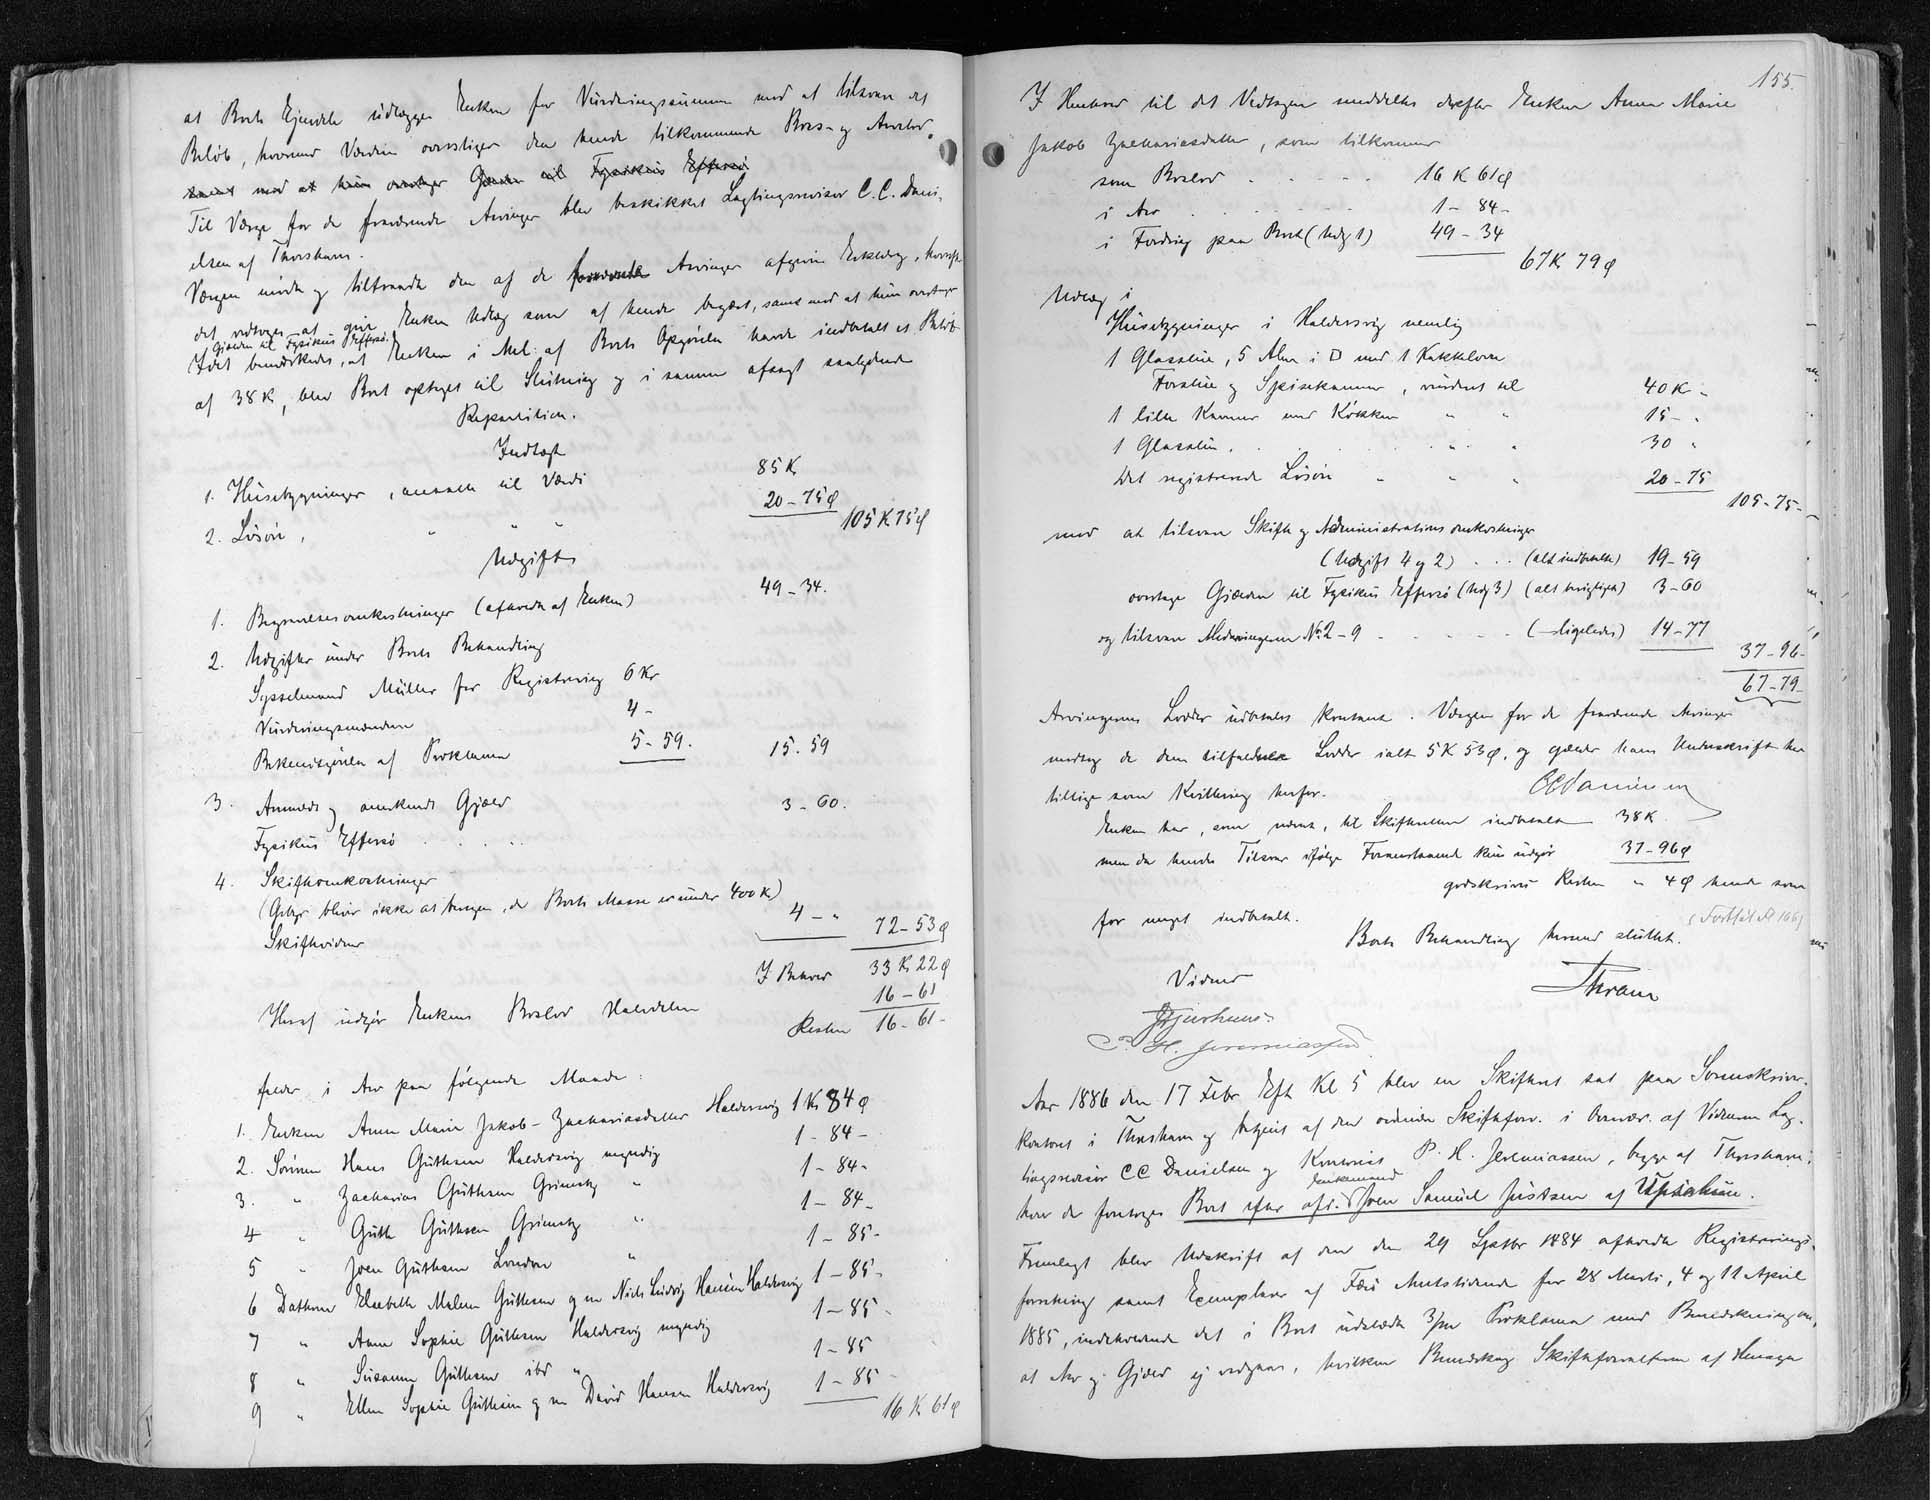 at Boets Ejendele udlægges Enken for Vurderingssummen mod at tilsvare det
Beløb, hvormed Værdien overstiger den hende tilkommende Boes- og Arvelod,
samt mod at hun overtager Gjælden til Fysikus Effersø.
Til Værge for de fraværende Arvinger blev beskikket Lagtingsrevisor C.C. Dani-
elsen af Thorshavn.
Værgen mødte og tiltraadte den af de fraværende Arvinger afgivne Erklæring, hvorefter
det vedtoges at give Enken Udlæg som af hende begjært, samt mod at hun overtager
Gjælden til Fysikus Effersø.
Idet bemærkedes, at Enken i Mel. af Boets Opgjørelse havde indbetalt et Beløb
af 38 K, blev Boet optaget til Slutning og i samme afsagt saalydende
Repartition.
Indtægt
1. Husebygninger, ansatte til Værdi 85 K
2. Løsøre, " " " 20 - 75 Ø 105 K 75 Ø
Udgifter
1. Begravelsesomkostninger (afholdte af Enken) 49 - 34.
2. Udgifter under Boets Behandling
Sysselmand Müller for Registrering 6 Kr
Vurderingsmændene 4 -
Bekendtgjørelse af Proklama 5 - 59. 15. 59
3. Anmeldt og anerkendt Gjæld
Fysikus Effersø . . . . . 3 - 60.
4. Skifteomkostninger
(Gebyr bliver ikke at beregne, da Boets Masse er under 400 K)
Skiftevidner 4 - " 72 - 53 Ø
I Behold 33 K 22 Ø
Heraf udgjør Enkens Boslod Halvdelen 16 - 61
Resten 16 - 61 -
falder i Arv paa følgende Maade:
1. Enken Anne Marie Jakob-Zachariasdatter Haldersvig 1 Kr 84 Ø
2. Sønnen Hans Guttesen Haldersvig myndig 1 - 84 -
3. " Zacharias Guttesen Grimsby " 1 - 84 -
4 " Gutte Guttesen Grimsby " 1 - 84 -
5 " Joen Guttesen London " 1 - 85 -
6 Datteren Elsebeth Malene Guttesen g. m. Niels Ludvig Hansen Haldersvig 1 - 85 -
7 " Anne Sophie Guttesen Haldersvig myndig 1 - 85 -
8 " Susanne Guttesen ibd " 1 - 85
9 " Ellen Sophie Guttesen g. m. David Hansen Haldersvig 1 - 85 -
16 K 61 Ø
155.
I Henhold til det Vedtagne meddeles derefter Enken Anne Marie
Jakob Zachariasdatter, som tilkommer
som Boslod . . . . . 16 K 61 Ø
i Arv . . . . . . 1 - 84 -
i Fordring paa Boet (Udg 1) 49 - 34
67 K 79 Ø
Udlæg i
Husebygninger i Haldersvig nemlig
1 Glasstue, 5 Alen i □ med 1 Kakkelovn
Forstue og Spisekammer, vurderet til 40 K -
1 lille Kammer med Køkken " " 15 - "
1 Glasstue. . . . . " " 30 "
Det registrerede Løsøre " " " 20 - 75
105 - 75 -
mod at tilsvare Skifte og Administrations omkostninger
(Udgift 4 og 2) . . . (alt indbetalt) 19 - 59
overtage Gjælden til Fysikus Effersø (Udg 3) (alt berigtiget) 3 - 60
og tilsvare Medarvingerne No. 2 - 9 . . . . . (- ligeledes) 14 - 77
37 - 96 -
67 - 79 -
Arvingernes Lodder udbetales kontant. Værgen for de fraværende Arvinger
modtog de dem tilfaldne Lodder ialt 5 K 53 Ø, og gjælder hans Underskrift her
tillige som Kvittering herfor.
CCDanielsen
Enken har, som nævnt, til Skifteretten indbetalt 38 K.
men da hendes Tilsvar ifølge Foranstaaende kun udgjør 37 - 96 Ø
godskrives Resten " 4 Ø hende som
for meget indbetalt. (Fortsat Fol 166)
Boets Behandling hermed sluttet.
Thram
Vidner
P. H. Jeremiassen
Aar 1886 den 17 Febr. Eft. Kl 5 blev en Skifteret sat paa Sorenskriver-
kontoret i Thorshavn og betjent af den ordinære Skifteforv. i Overvær. af Vidnerne Lag-
tingsrevisor CC Danielsen og Kontorist P. H. Jeremiassen, begge af Thorshavn;
hvor da foretoges Boet efter afd. Enkemand Joen Samuel Justsen af
Fremlagt blev Udskrift af den den 29 Septbr 1884 afholdte Registrerings-
forretning samt Exemplarer af Færø Amtstidende for 28 Marts, 4 og 11 April
1885, indeholdende det i Boet udstedte 3/m Proklama med Bemærkning om,
at Arv og Gjæld ej vedgaaes, hvilken Bemærkning Skifteforvalteren af Hensyn